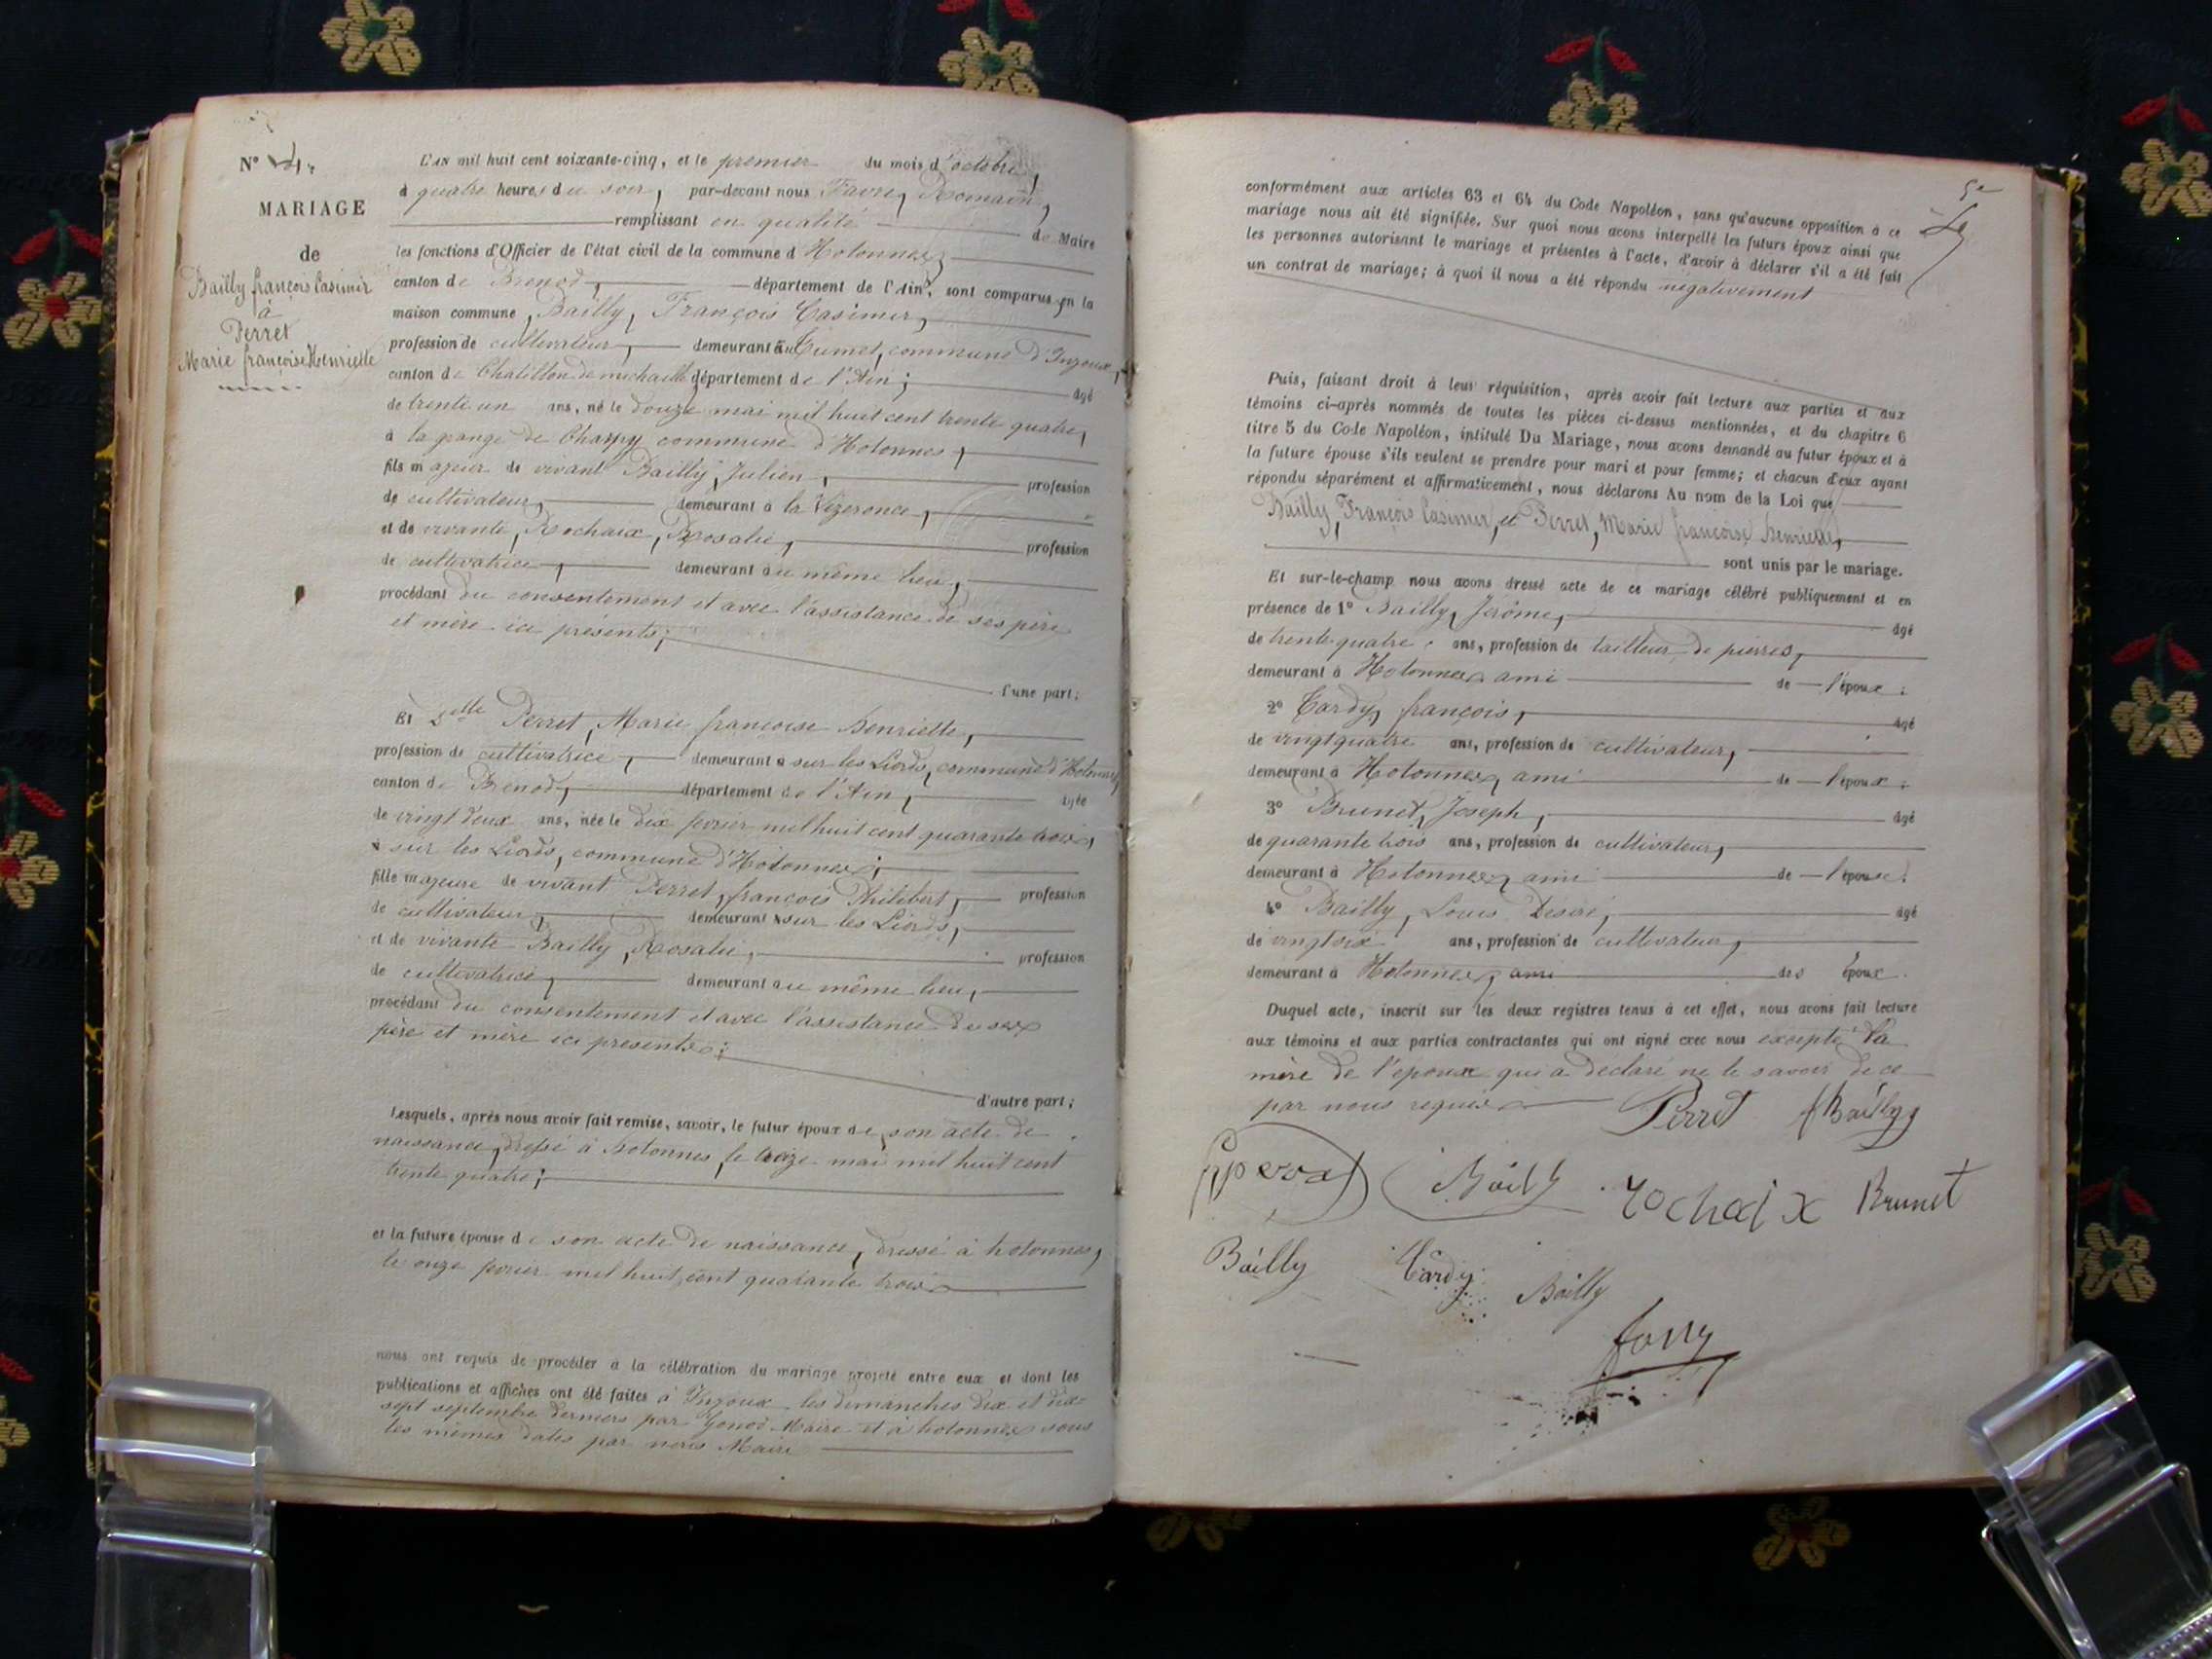 N° 4.
MARIAGE
de
Bailly françois Casimir
à
Perret
Marie françoise Henriette
L'AN mil huit cent soixante-cinq, et le premier du mois d'octobre,
à quatre heures du soir, par-devant nous Favre, Romain,
remplissant en qualité de Maire
les fonctions d'Officier de l'état civil de la commune d'Hotonnes,
canton de Brenod, département de l'Ain, sont comparus en la
maison commune, Bailly, François Casimir,
profession de cultivateur, demeurant au Cumet, commune d'Injoux,
canton de Chatillon de michaille département de l'Ain; âgé
de trente un ans, né le douze mai mil huit cent trente quatre,
à la grange de Charpy commune d'Hotonnes,
fils majeur de vivant Bailly, Julien, profession
de cultivateur, demeurant à la Vézeronce,
et de vivante, Rochaix, Rosalie, profession
de cultivatrice, demeurant au même lieu,
procédant du consentement et avec l'assistance de ses père
et mère ici présents;
d'une part;
Et Delle Perret, Marie françoise henriette,
profession de cultivatrice, demeurant à sur les Liords, commune d'Hotonnes
canton de Brenod, département de l'Ain, âgée
de vingt deux ans, née le dix fevrier mil huit cent quarante trois,
à sur les Liords, commune d'Hotonnes;
fille majeure de vivant Perret, françois Philibert, profession
de cultivateur, demeurant à sur les Liords,
et de vivante Bailly, Rosalie, profession
de cultivatrice, demeurant au même lieu,
procédant du consentement et avec l'assistance de ses
père et mère ici presents;
d'autre part;
Lesquels, après nous avoir fait remise, savoir, le futur époux de son acte de
naissance, dressé à hotonnes, le treize mai mil huit cent
trente quatre;
et la future épouse de son acte de naissance, dressé à hotonnes,
le onze fevrier mil huit cent quarante trois
nous ont requis de procéder à la célébration du mariage projeté entre eux et dont les
publications et affiches ont été faites à Injoux les dimanches dix et dix-
sept septembre derniers par Gonod Maire et à hotonnes sous
les mêmes dates par nous Maire
5e
conformément aux articles 63 et 64 du Code Napoléon, sans qu'aucune opposition à ce
mariage nous ait été signifiée. Sur quoi nous avons interpellé les futurs époux ainsi que
les personnes autorisant le mariage et présentes à l'acte, d'avoir à déclarer s'il a été fait
un contrat de mariage; à quoi il nous a été répondu négativement
Puis, faisant droit à leur réquisition, après avoir fait lecture aux parties et aux
témoins ci-après nommés de toutes les pièces ci-dessus mentionnées, et du chapitre 6
titre 5 du Code Napoléon, intitulé Du Mariage, nous avons demandé au futur époux et à
la future épouse s'ils veulent se prendre pour mari et pour femme; et chacun d'eux ayant
répondu séparément et affirmativement, nous déclarons Au nom de la Loi que
Bailly, François Casimir, et Perret, Marie françoise henriette,
sont unis par le mariage.
Et sur-le-champ nous avons dressé acte de ce mariage célébré publiquement et en
présence de 1° Bailly, Jérôme, âgé
de trente quatre ans, profession de tailleur de pierres,
demeurant à Hotonnes, ami de l'époux;
2° Tardy, françois, âgé
de vingt quatre ans, profession de cultivateur,
demeurant à Hotonnes, ami de l'époux;
3° Brunet, Joseph, âgé
de quarante trois ans, profession de cultivateur,
demeurant à Hotonnes, ami de l'épouse;
4° Bailly, Louis Desiré, âgé
de vingt six ans, profession de cultivateur,
demeurant à Hotonnes, ami des époux.
Duquel acte, inscrit sur les deux registres tenus à cet effet, nous avons fait lecture
aux témoins et aux parties contractantes qui ont signé avec nous excepté la
mère de l'epoux qui a declaré ne le savoir de ce
par nous requis
Perret Bailly
Bailly rochaix Brunet
Bailly Tardy Bailly